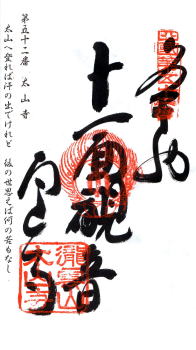 奉納
十一面観音
太山寺
第五十二番 太山寺
太山へ登れば汗の出でけれど
後の世思えば何の苦もなし